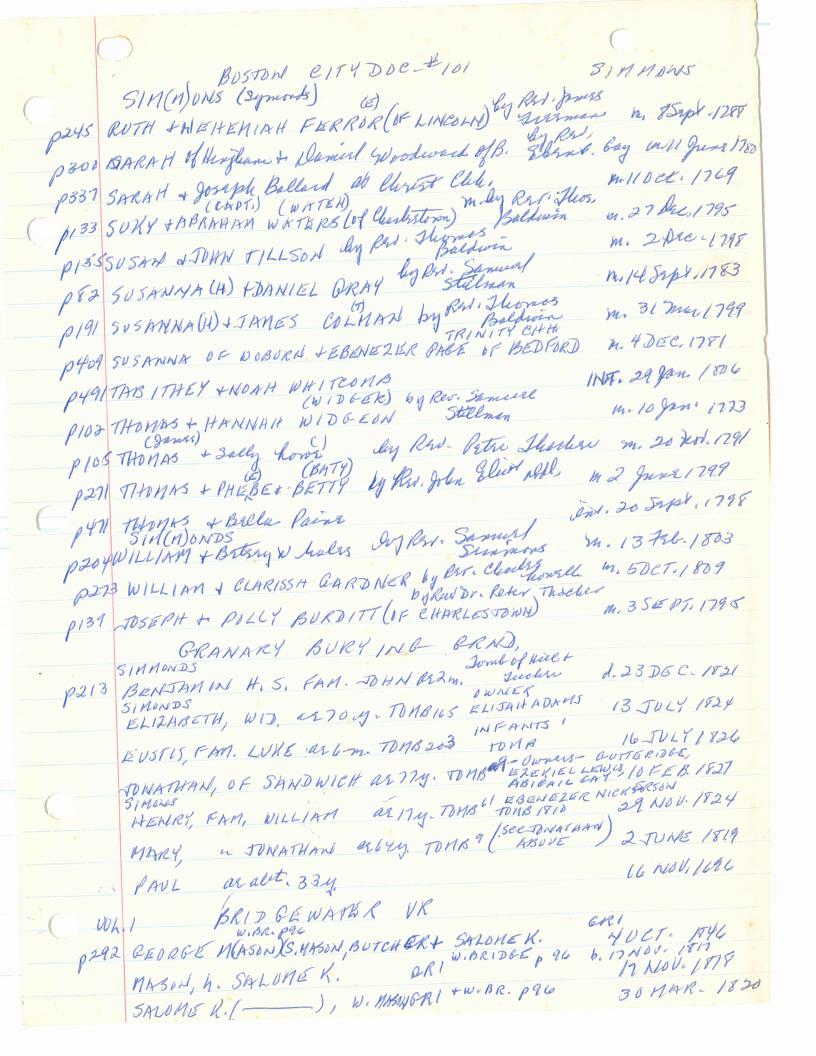 BOSTON CITY DOC-#101 SIMMONS
SIM(M)ONS (Symonds)
p245 RUTH + NEHEMIAH FERROR(E) (OF LINCOLN) by Rev. James Freeman m. 8 Sept. 1788
p300 SARAH of Hingham + Daniel Woodward of B. by Rev. Ebent. Gay m. 11 June 1780
p337 SARAH & Joseph Ballard at Christ Chh. m. 11 Oct. 1769
p133 SUKY + (CAPT.) ABRAHAM WATERS (WATEH) (of Charlestown) m. by Rev. Thos. Baldwin m. 27 Dec. 1795
p135 SUSAN & JOHN TILLSON by Rev. Thomas Baldwin m. 2 Dec. 1798
p82 SUSANNA(H) + DANIEL GRAY by Rev. Samuel Stillman m. 14 Sept. 1783
p191 SUSANNA(H) + JAMES COLMAN (T) by Rev. Thomas Baldwin m. 31 Mar. 1799
p409 SUSANNA OF WOBURN + EBENEZER PAGE OF BEDFORD TRINITY CHH m. 4 DEC. 1781
p491 TABITHEY + NOAH WHITCOMB INT. 29 Jan. 1806
p102 THOMAS + HANNAH WIDGEON (WIDGER) by Rev. Samuel Stillman m. 10 Jan. 1773
p105 THOMAS (James) + Sally (C) by Rev. Peter Thacher m. 20 Nov. 1791
p271 THOMAS + PHEBE (E) + BETTY (BATY) by Rev. John Eliot m 2 June 1799
p471 THOMAS & Bella Paine int. 20 Sept. 1798
SIM(M)ONDS
p204 WILLIAM + Betsey W by Rev. Samuel m. 13 Feb. 1803
p273 WILLIAM + CLARISSA GARDNER by Rev. Charles Lowell m. 5 OCT. 1809
p139 JOSEPH + POLLY BURDITT (OF CHARLESTOWN) by Rev Dr. Peter Thacher m. 3 SEPT. 1795
GRANARY BURYING GRND,
SIMMONDS
p213 BENJAMIN H. S. FAM. JOHN ae 2 m. Tomb of Hill + d. 23 DEC. 1821
SIMONDS
ELIZABETH, WID. ae 70 y. TOMB 165 OWNER ELIJAH ADAMS 13 JULY 1824
EUSTIS, FAM. LUKE ae 6 m. TOMB 203 INFANTS' TOMB 16 JULY 1826
JONATHAN, OF SANDWICH ae 77 y. TOMB 9 - Owners - GUTTERIDGE, EZEKIEL LEWIS, ABIGAIL 10 FEB 1827
SIMONS
HENRY, FAM. WILLIAM ae 17 y. TOMB 61 EBENEZER NICKERSON TOMB 1810 29 NOV. 1824
MARY, " JONATHAN ae 64 y. TOMB 9 (SEE JONATHAN ABOVE) 2 JUNE 1819
PAUL ae abt. 33 y. 16 NOV. 1696
VOL. 1 BRIDGEWATER VR
p292 GEORGE M(ASON) (S. MASON, BUTCHER + SALOME K. W. BR. p96 GR1 4 OCT. 1846
MASON, h. SALOME K. GR1 W. BRIDGE p 96 b. 17 NOV. 1817
17 NOV. 1818
SALOME K. (———), W. MASON GR1 + W. BR. p96 30 MAR. 1820